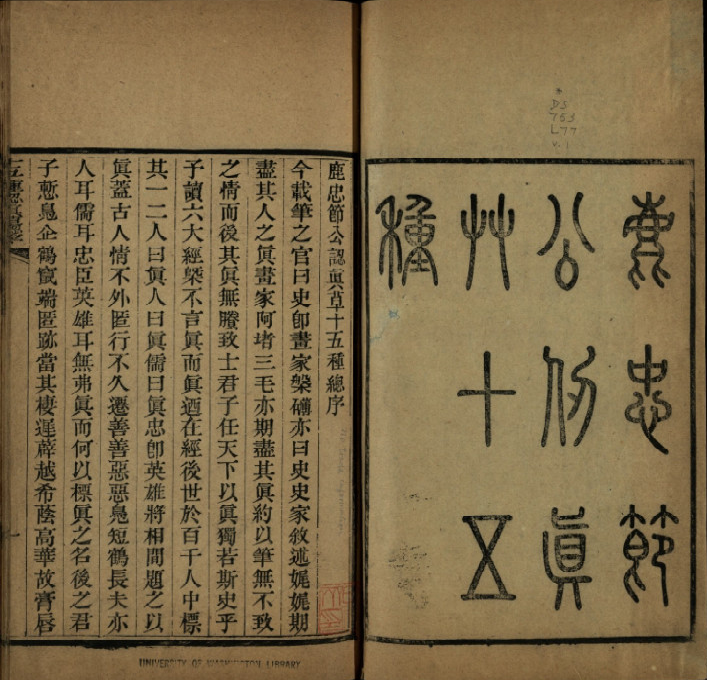 鹿忠節
公認眞
艸十五
種
DS
753
L77
v.1
鹿忠節公認眞草十五種總序
今載筆之官曰史卽畫家槃礴亦曰史史家敘述娓娓期
盡其人之眞畫家阿堵三毛亦期盡其眞約以筆無不致
之情而後其眞無賸致士君子任天下以眞獨若斯史乎
子讀六大經槩不言眞而眞迺在經後世於百千人中標
其一二人曰眞人曰眞儒曰眞忠卽英雄將相間題之以
眞蓋古人情不外匿行不久遷善善惡惡鳧短鶴長夫亦
人耳儒耳忠臣英雄耳無弗眞而何以標眞之名後之君
子慙鳧企鶴竄端匿跡當其棲遲薜越希蔭高華故膏唇
UNIVERSITY OF WASHINGTON LIBRARY